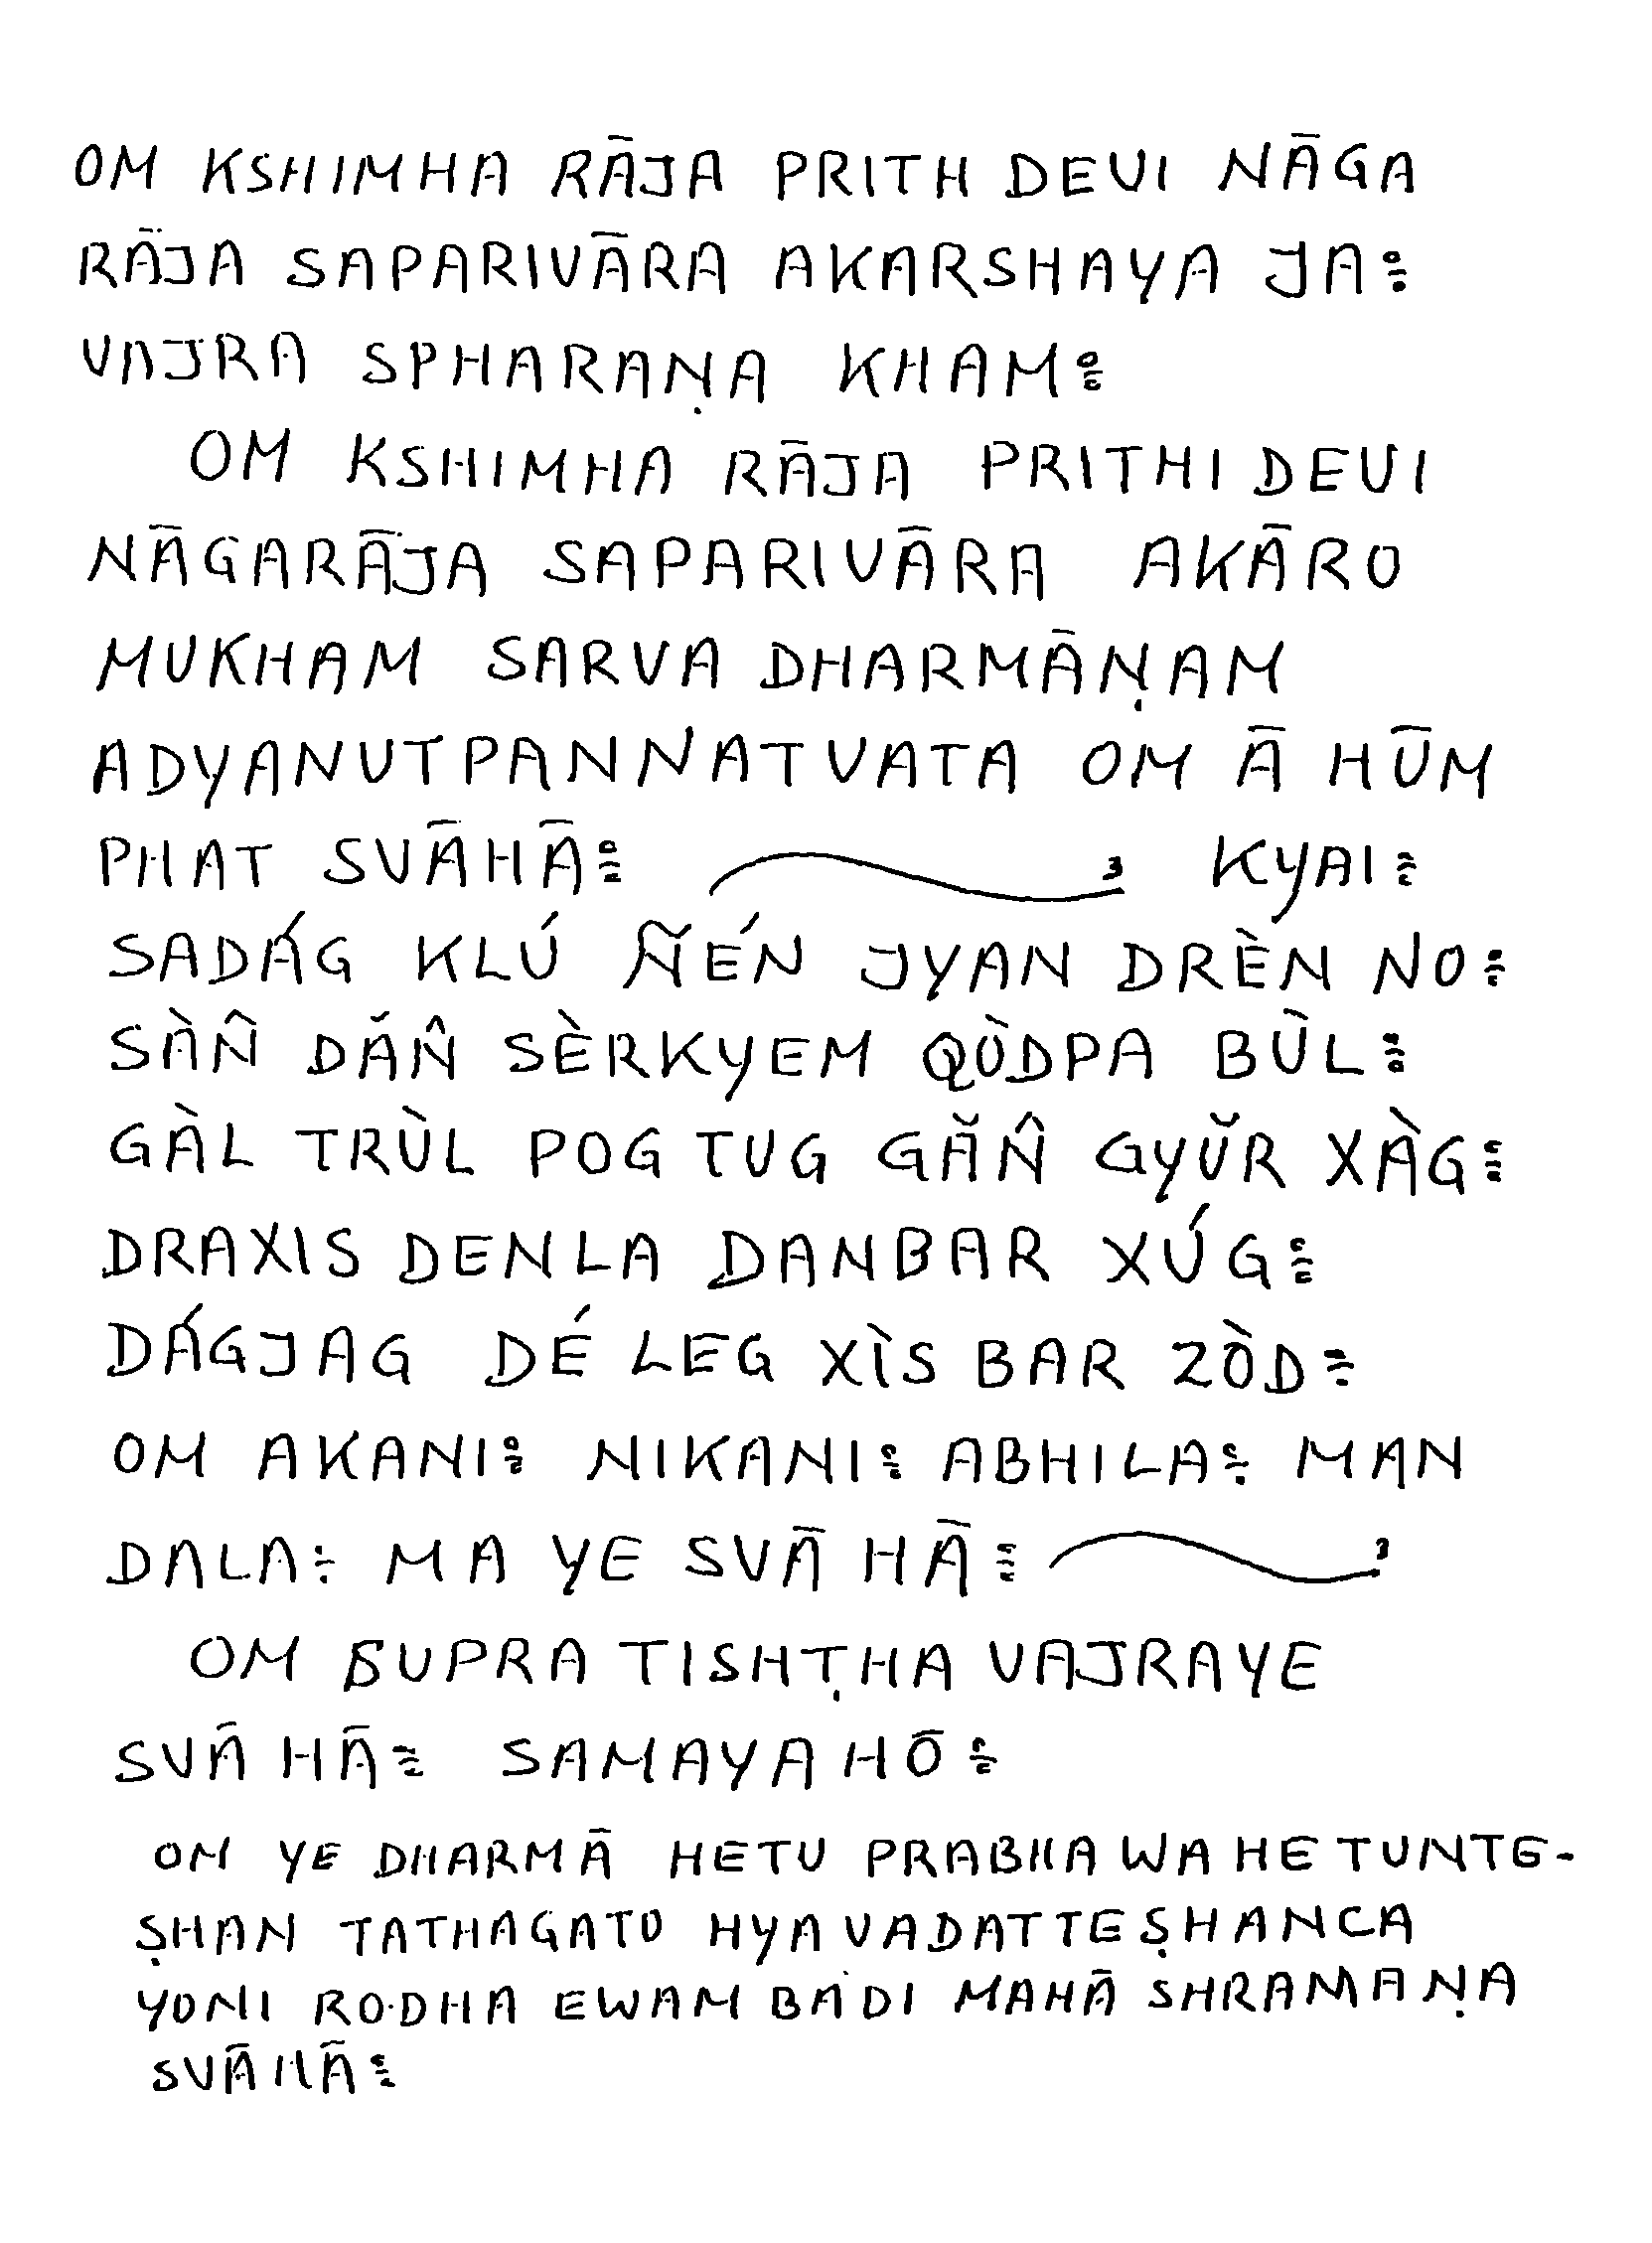 OM KSHIMHA RĀJA PRITH DEVI NĀGA
RĀJA SAPARIVĀRA AKARSHAYA JA⁝
VAJRA SPHARAṆA KHAM⁝
OM KSHIMHA RĀJA PRITHI DEVI
NĀGARĀJA SAPARIVĀRA AKĀRO
MUKHAM SARVA DHARMĀṆAM
ADYANUTPANNATVATA OM Ā HŪM
PHAT SVĀHĀ⁝ 3 KYAI⁝
SADÁG KLÚ ÑÉN JYAN DRÈN NO⁝
SÀN̂ DĂN̂ SÈRKYEM QÙDPA BÙL⁝
GÀL TRÙL POG TUG GĂN̂ GYŬR XÀG⁝
DRAXIS DENLA DANBAR XÚG⁝
DÁGJAG DÉ LEG XÌS BAR ZÒD⁝
OM AKANI⁝ NIKANI⁝ ABHILA⁝ MAN
DALA⁝ MA YE SVĀ HĀ⁝ 3
OM SUPRA TISHṬHA VAJRAYE
SVĀ HĀ⁝ SAMAYA HŌ⁝
OM YE DHARMĀ HETU PRABHAWA HE TUNTE-
ṢHAN TATHAGATO HYAVADATTEṢHANCA
YONI RODHA EWAM BADI MAHĀ SHRAMAṆA
SVĀHĀ⁝